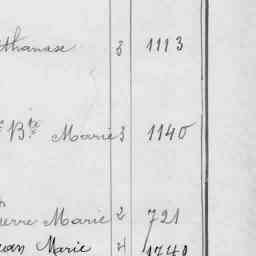 thanase 3 1113
Bte Marie 3 1140
ierre Marie 2 721
Marie 4 1740